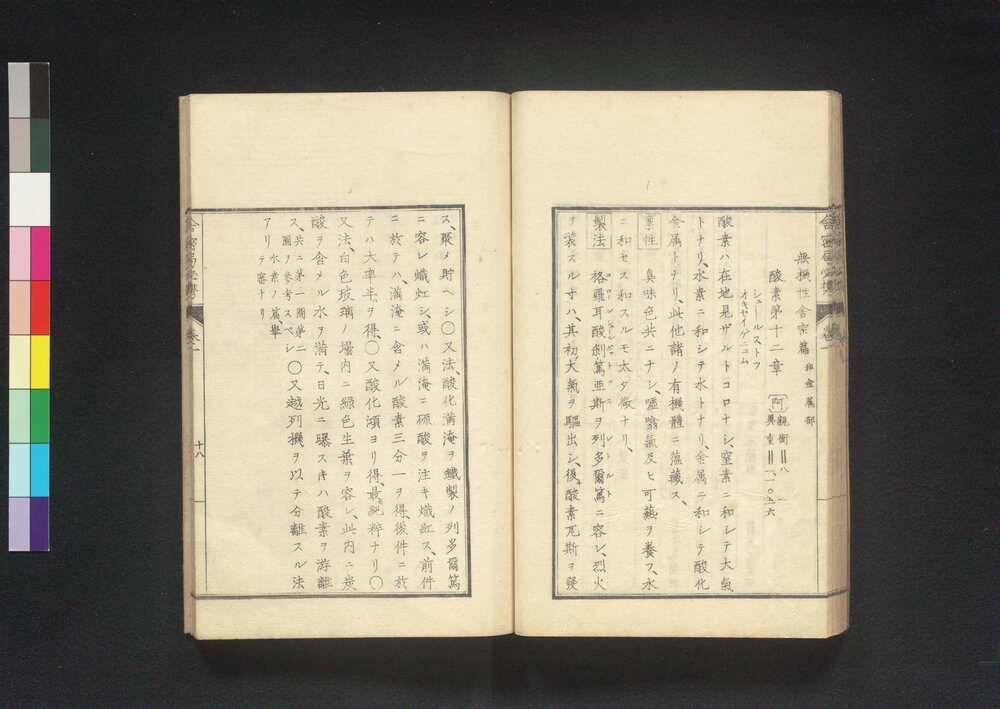 無機性舍密篇 非金属部
酸素第十二章 阿 親衡＝八
異重＝一、一〇五六
シュールストフ
オキセイゲニユム
酸素ハ在地見ザルトコロナシ、窒素ニ和シテ大氣
トナリ、水素ニ和シテ水トナリ、金属ニ和シテ酸化
金属トナリ、此他諸ノ有機體ニ蘊藏ス、
稟性 臭味色共ニナシ、嘘噏氣及ヒ可燕ヲ養フ、水
ニ和セス和スルモ太タ微ナリ、
製法 格羅耳酸剝篤亜斯ヲ列多爾篤ニ容レ、烈火
ヲ装スル寸ハ、其初大氣ヲ驅出シ、後酸素瓦斯ヲ發
ス、聚メ貯ヘシ〇又法、酸化満淹ヲ鐵製ノ列多爾篤
ニ容レ熾紅シ、或ハ満淹ニ硫酸ヲ注キ熾紅ス、前件
ニ於テハ、満淹ニ含メル酸素三分一ヲ得、後件ニ於
テハ大率半ヲ得、〇又酸化汞ヨリ得、最純粋ナリ〇
又法、白色玻璃ノ壜内ニ緑色生葉ヲ容レ、此内ニ炭
酸ヲ含メル水ヲ満テ、日光ニ曝スキハ酸素ヲ游離
ス、共ニ第一圖第二
圖ヲ参考スベシ〇又越列機ヲ以テ分離スル法
アリテ審ナリ 水素ノ篇擧
十八